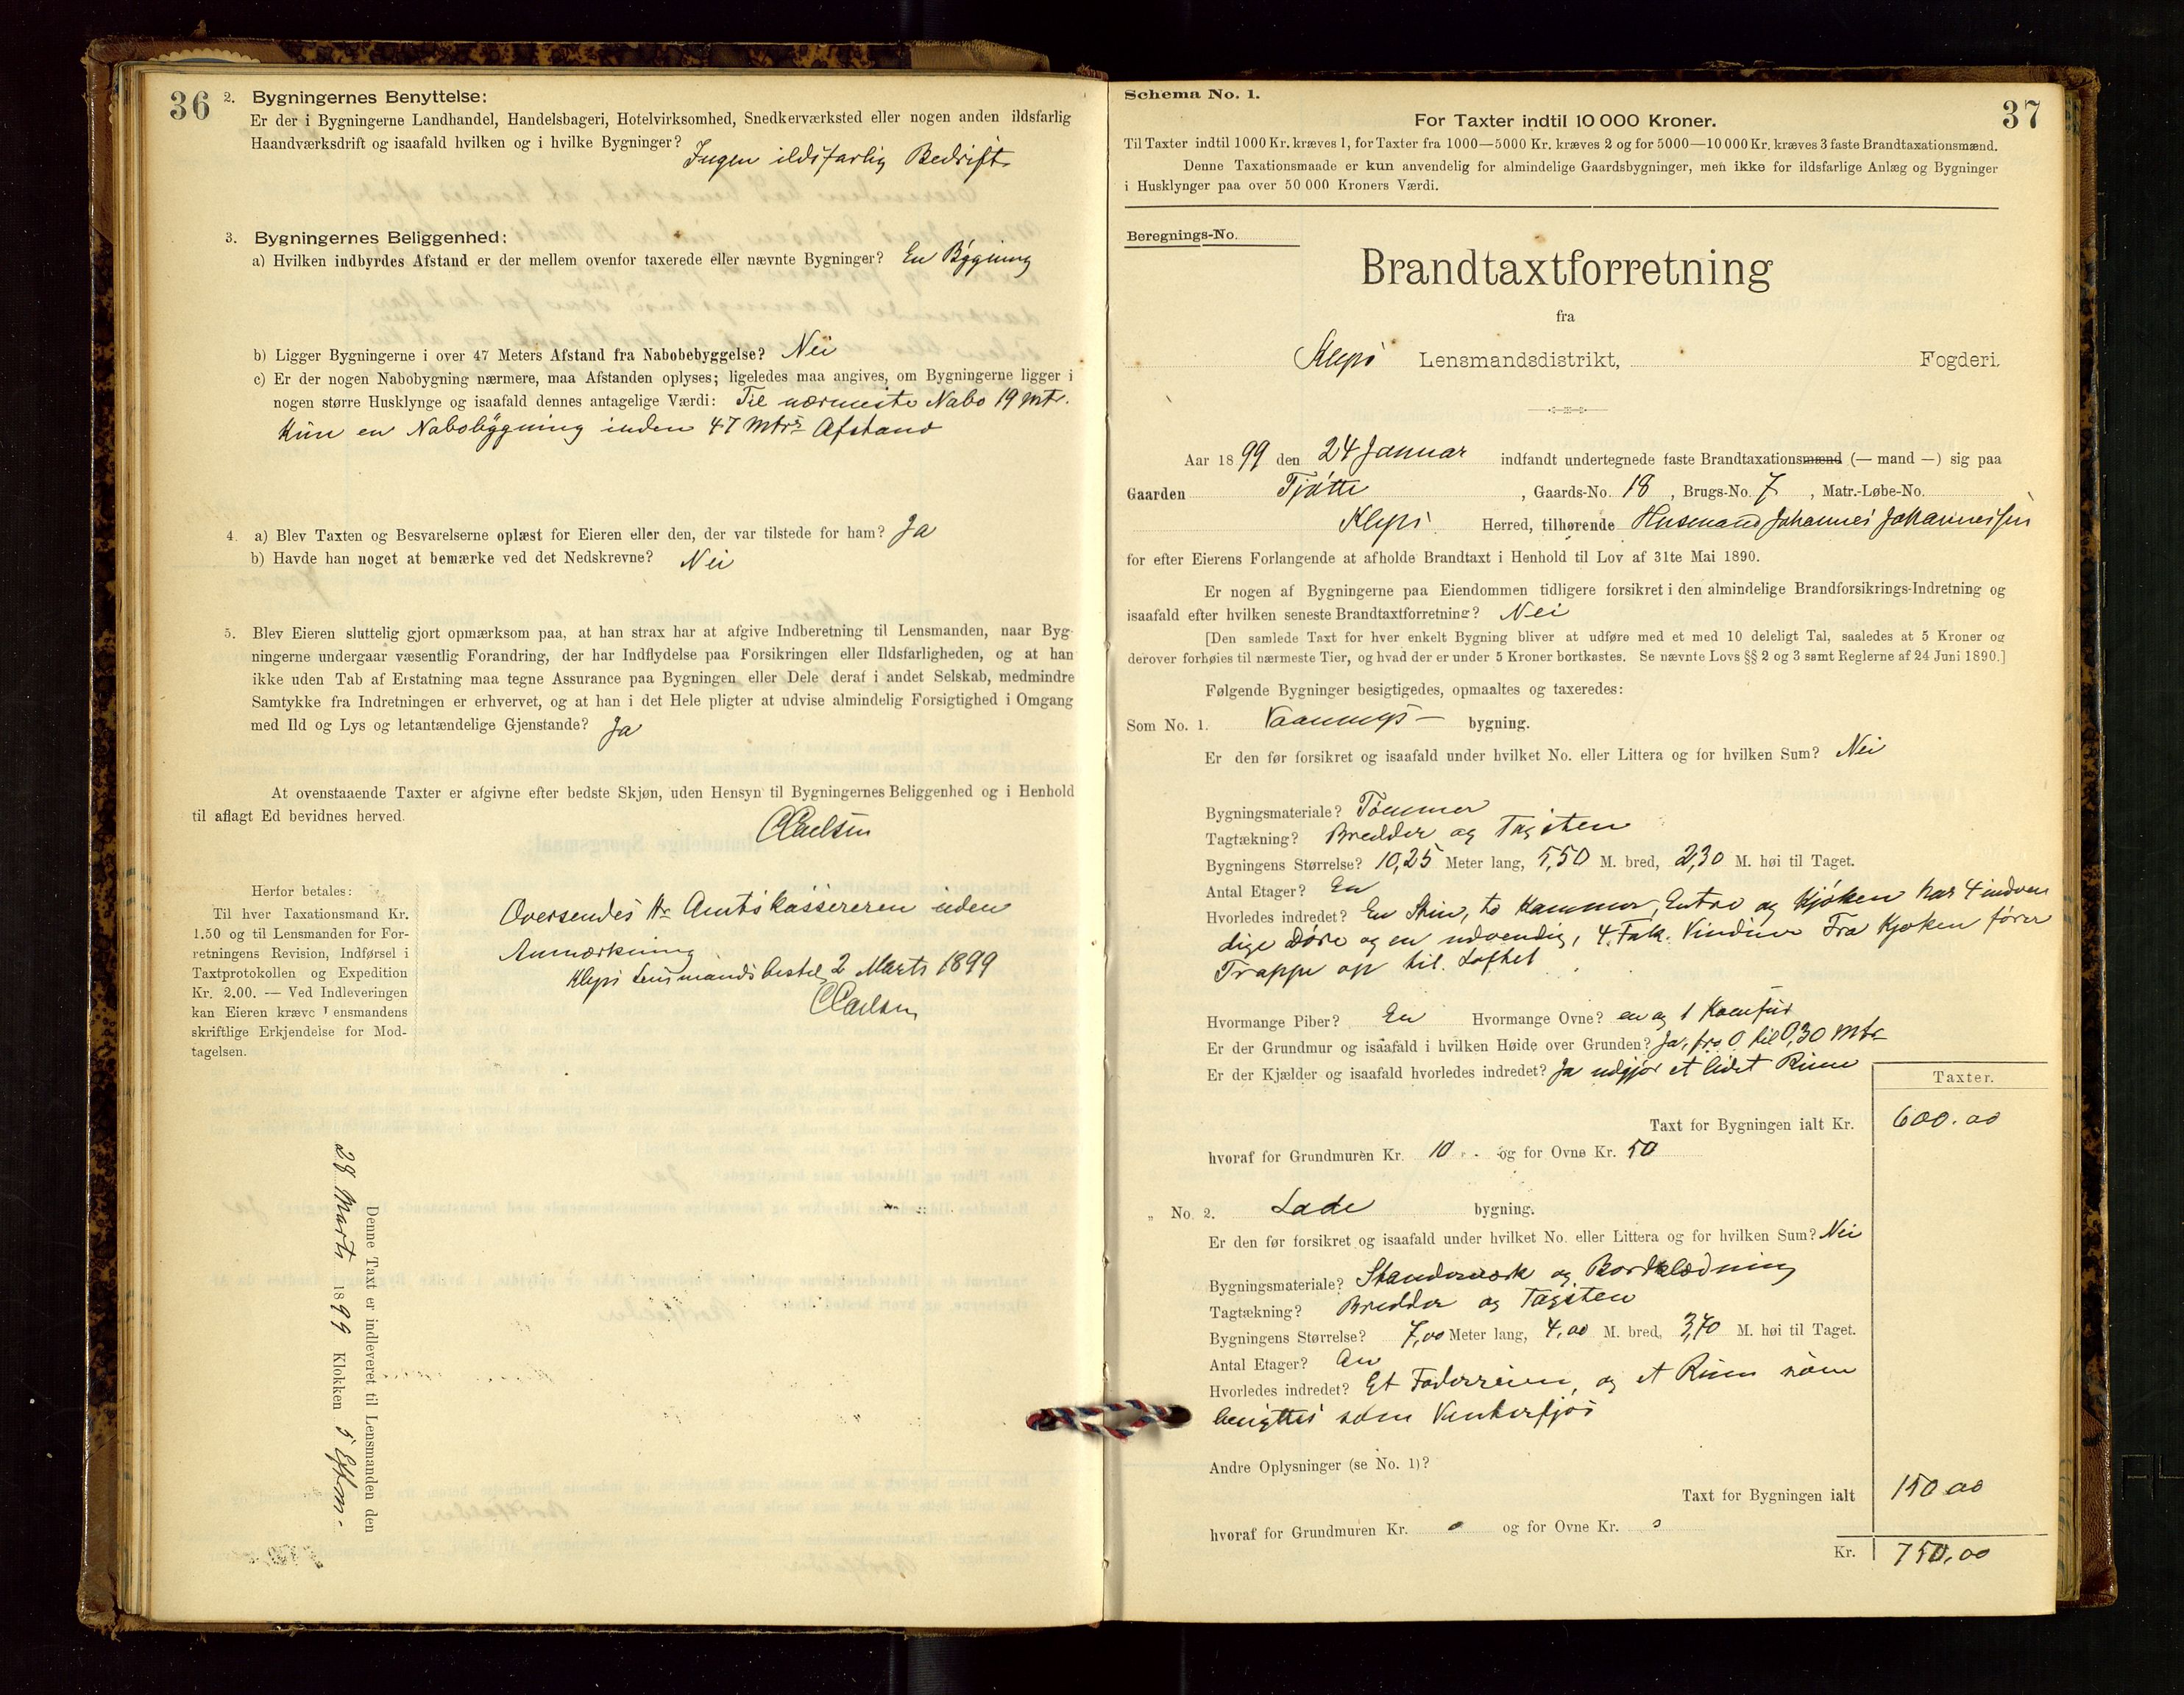 36
2. Bygningernes Benyttelse:
Er der i Bygningerne Landhandel, Handelsbageri, Hotelvirksomhed, Snedkerværksted eller nogen anden ildsfarlig
Haandværksdrift og isaafald hvilken og i hvilke Bygninger? Ingen ildsfarlig Bedrift
3. Bygningernes Beliggenhed:
a) Hvilken indbyrdes Afstand er der mellem ovenfor taxerede eller nævnte Bygninger? En Bygning
b) Ligger Bygningerne i over 47 Meters Afstand fra Nabobebyggelse? Nei
c) Er der nogen Nabobygning nærmere, maa Afstanden oplyses; ligeledes maa angives, om Bygningerne ligger i
nogen større Husklynge og isaafald dennes antagelige Værdi: Til nærmeste Nabo 19 Mtr.
Kun en Nabobygning inden 47 Mtrs Afstand
4. a) Blev Taxten og Besvarelserne oplæst for Eieren eller den, der var tilstede for ham? Ja
b) Havde han noget at bemærke ved det Nedskrevne? Nei
5. Blev Eieren sluttelig gjort opmærksom paa, at han strax har at afgive Indberetning til Lensmanden, naar Byg-
ningerne undergaar væsentlig Forandring, der har Indflydelse paa Forsikringen eller Ildsfarligheden, og at han
ikke uden Tab af Erstatning maa tegne Assurance paa Bygningen eller Dele deraf i andet Selskab, medmindre
Samtykke fra Indretningen er erhvervet, og at han i det Hele pligter at udvise almindelig Forsigtighed i Omgang
med Ild og Lys og letantændelige Gjenstande? Ja
At ovenstaaende Taxter er afgivne efter bedste Skjøn, uden Hensyn til Bygningernes Beliggenhed og i Henhold
til aflagt Ed bevidnes herved.
CCarlsen
Herfor betales:
Til hver Taxationsmand Kr.
1.50 og til Lensmanden for For-
retningens Revision, Indførsel i
Taxtprotokollen og Expedition
Kr. 2.00. — Ved Indleveringen
kan Eieren kræve Lensmandens
skriftlige Erkjendelse for Mod-
tagelsen.
Oversendes Hr Amtskassereren uden
Anmærkning
Kleps Lensmandsbestil 2 Marts 1899
CCarlsen
Denne Taxt er indleveret til Lensmanden den
28 Marts 1899 Klokken 5 Efterm.
Schema No. 1.
37
For Taxter indtil 10 000 Kroner.
Til Taxter indtil 1000 Kr. kræves 1, for Taxter fra 1000—5000 Kr. kræves 2 og for 5000—10 000 Kr. kræves 3 faste Brandtaxationsmænd.
Denne Taxationsmaade er kun anvendelig for almindelige Gaardsbygninger, men ikke for ildsfarlige Anlæg og Bygninger
i Husklynger paa over 50 000 Kroners Værdi.
Beregnings-No.
Brandtaxtforretning
fra
Kleps Lensmandsdistrikt, Fogderi.
Aar 1899 den 24 Januar indfandt undertegnede faste Brandtaxationsmænd (— mand —) sig paa
Gaarden Tjøtte, Gaards-No. 18, Brugs-No. 7, Matr.-Løbe-No.
Kleps Herred, tilhørende Husmand Johannes Johannessen
for efter Eierens Forlangende at afholde Brandtaxt i Henhold til Lov af 31te Mai 1890.
Er nogen af Bygningerne paa Eiendommen tidligere forsikret i den almindelige Brandforsikrings-Indretning og
isaafald efter hvilken seneste Brandtaxtforretning? Nei
[Den samlede Taxt for hver enkelt Bygning bliver at udføre med et med 10 deleligt Tal, saaledes at 5 Kroner og
derover forhøies til nærmeste Tier, og hvad der er under 5 Kroner bortkastes. Se nævnte Lovs §§ 2 og 3 samt Reglerne af 24 Juni 1890.]
Følgende Bygninger besigtigedes, opmaaltes og taxeredes:
Som No. 1. Vaanings— bygning.
Er den før forsikret og isaafald under hvilket No. eller Littera og for hvilken Sum? Nei
Bygningsmateriale? Tømmer
Tagtækning? Bredder og Tagsten
Bygningens Størrelse? 10,25 Meter lang, 5,50 M. bred, 2,30 M. høi til Taget.
Antal Etager? En
Hvorledes indredet? En Stue, to Kammer, Entre og Kjøken har 4 indven
dige Døre og en udvendig, 4. Fak. Vinduer Fra Kjøken fører
Trappe op til Loftet
Hvormange Piber? En Hvormange Ovne? en og 1 Komfur
Er der Grundmur og isaafald i hvilken Høide over Grunden? Ja, fra 0 til 0,30 Mtr
Er der Kjælder og isaafald hvorledes indredet? Ja udgjør et lidet Rum
Taxter.
Taxt for Bygningen ialt Kr. 600.00
hvoraf for Grundmuren Kr. 10 og for Ovne Kr. 50
„ No. 2. Lade bygning.
Er den før forsikret og isaafald under hvilket No. eller Littera og for hvilken Sum? Nei
Bygningsmateriale? Standerværk og Bordklædning
Tagtækning? Bredder og Tagsten
Bygningens Størrelse? 7,00 Meter lang, 4,00 M. bred, 3,70 M. høi til Taget.
Antal Etager? En
Hvorledes indredet? Et Foderrum, og et Rum som
benyttes som Vinterfjøs
Andre Oplysninger (se No. 1)?
Taxt for Bygningen ialt 150.00
hvoraf for Grundmuren Kr. 0 og for Ovne Kr. 0
Kr. 750,00